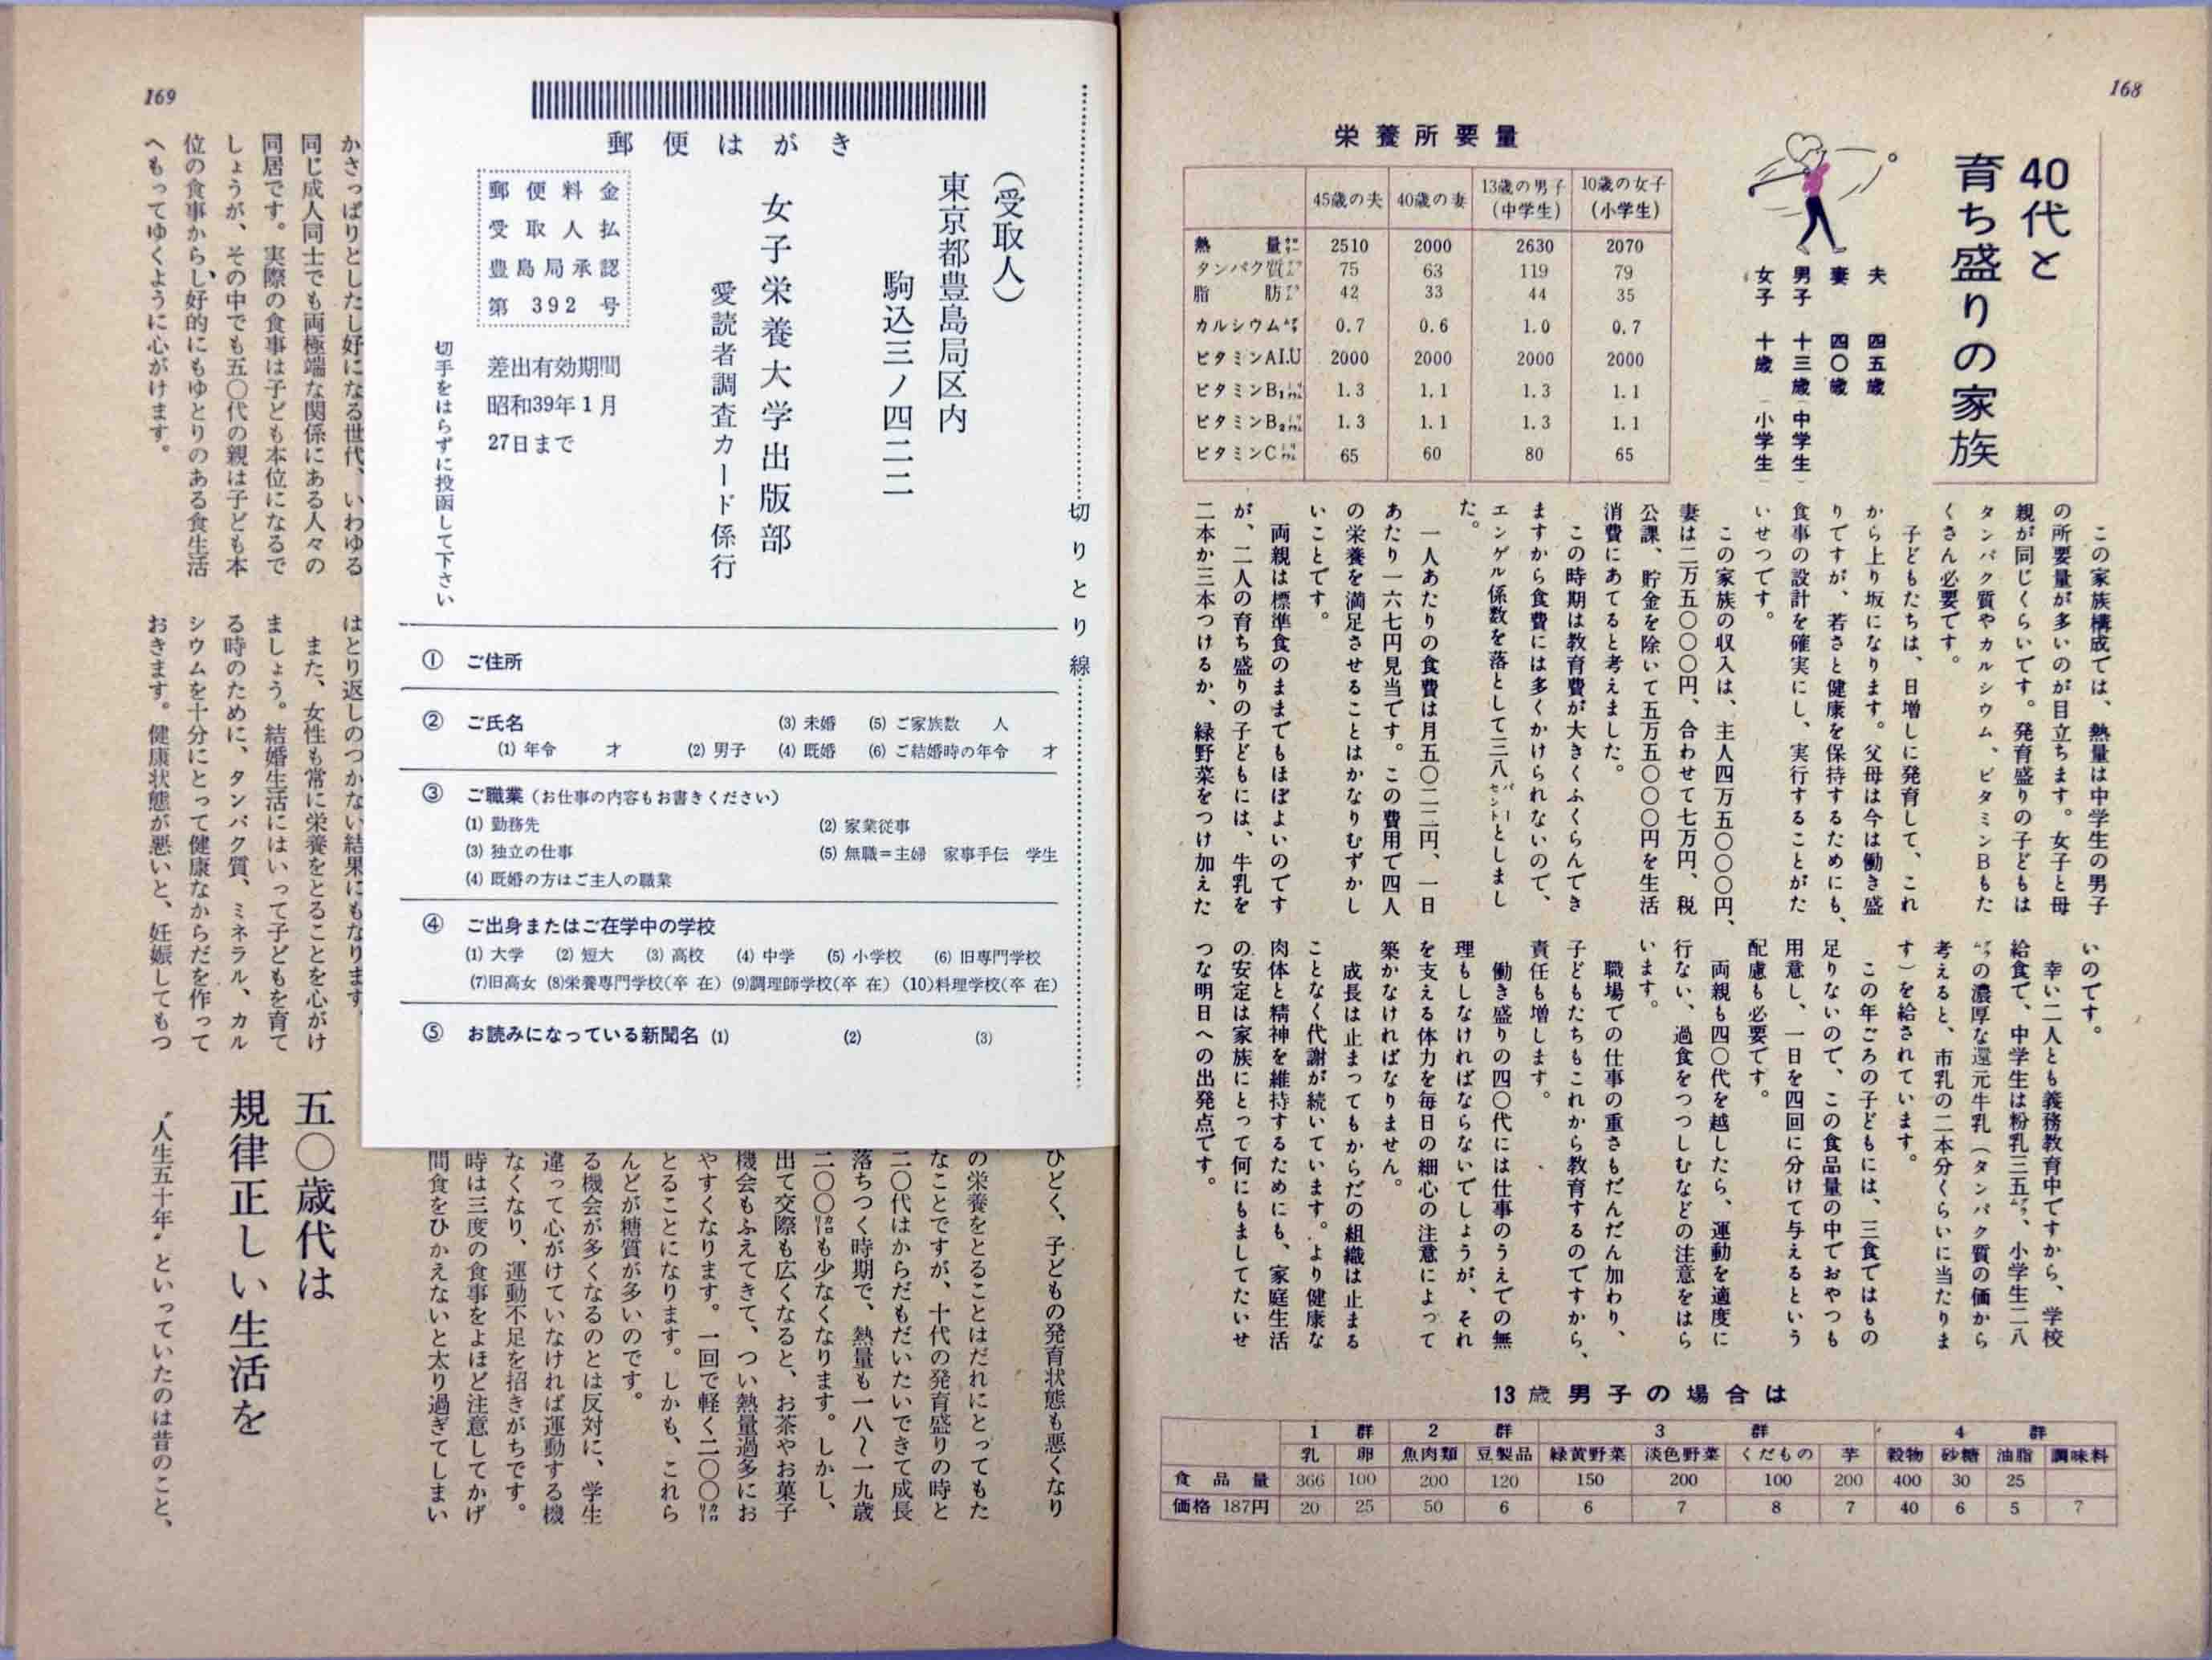 168
40代と
育ち盛りの家族
夫 四五歳
妻 四〇歳
男子 十三歳（中学生）
女子 十歳（小学生）
栄養所要量
45歳の夫 40歳の妻 13歳の男子（中学生） 10歳の女子（小学生）
熱量カロリー 2510 2000 2630 2070
タンパク質グラム 75 63 119 79
脂肪グラム 42 33 44 35
カルシウムグラム 0.7 0.6 1.0 0.7
ビタミンAI.U 2000 2000 2000 2000
ビタミンB₁ミリグラム 1.3 1.1 1.3 1.1
ビタミンB₂ミリグラム 1.3 1.1 1.3 1.1
ビタミンCミリグラム 65 60 80 65
この家族構成では、熱量は中学生の男子
の所要量が多いのが目立ちます。女子と母
親が同じくらいです。発育盛りの子どもは
タンパク質やカルシウム、ビタミンBもた
くさん必要です。
子どもたちは、日増しに発育して、これ
から上り坂になります。父母は今は働き盛
りですが、若さと健康を保持するためにも、
食事の設計を確実にし、実行することがた
いせつです。
この家族の収入は、主人四万五〇〇〇円、
妻は二万五〇〇〇円、合わせて七万円、税
公課、貯金を除いて五万五〇〇〇円を生活
消費にあてると考えました。
この時期は教育費が大きくふくらんでき
ますから食費には多くかけられないので、
エンゲル係数を落として三八パーセントとしまし
た。
一人あたりの食費は月五〇二二円、一日
あたり一六七円見当です。この費用で四人
の栄養を満足させることはかなりむずかし
いことです。
両親は標準食のままでもほぼよいのです
が、二人の育ち盛りの子どもには、牛乳を
二本か三本つけるか、緑野菜をつけ加えた
いのです。
幸い二人とも義務教育中ですから、学校
給食で、中学生は粉乳三五グラム、小学生二八
グラムの濃厚な還元牛乳（タンパク質の価から
考えると、市乳の二本分くらいに当たりま
す）を給されています。
この年ごろの子どもには、三食ではもの
足りないので、この食品量の中でおやつも
用意し、一日を四回に分けて与えるという
配慮も必要です。
両親も四〇代を越したら、運動を適度に
行ない、過食をつつしむなどの注意をはら
います。
職場での仕事の重さもだんだん加わり、
子どもたちもこれから教育するのですから、
責任も増します。
働き盛りの四〇代には仕事のうえでの無
理もしなければならないでしょうが、それ
を支える体力を毎日の細心の注意によって
築かなければなりません。
成長は止まってもからだの組織は止まる
ことなく代謝が続いています。より健康な
肉体と精神を維持するためにも、家庭生活
の安定は家族にとって何にもましてたいせ
つな明日への出発点です。
13歳男子の場合は
1群 2群 3群 4群
乳 卵 魚肉類 豆製品 緑黄野菜 淡色野菜 くだもの 芋 穀物 砂糖 油脂 調味料
食品量 366 100 200 120 150 200 100 200 400 30 25
価格 187円 20 25 50 6 6 7 8 7 40 6 5 7
切りとり線
郵便はがき
（受取人）
東京都豊島局区内
駒込三ノ四二二
女子栄養大学出版部
愛読者調査カード係行
郵便料金
受取人払
豊島局承認
第 392 号
差出有効期間
昭和39年1月
27日まで
切手をはらずに投函して下さい
① ご住所
② ご氏名 (3) 未婚 (5) ご家族数 人
(1) 年令 才 (2) 男子 (4) 既婚 (6) ご結婚時の年令 才
③ ご職業（お仕事の内容もお書きください）
(1) 勤務先 (2) 家業従事
(3) 独立の仕事 (5) 無職＝主婦 家事手伝 学生
(4) 既婚の方はご主人の職業
④ ご出身またはご在学中の学校
(1) 大学 (2) 短大 (3) 高校 (4) 中学 (5) 小学校 (6) 旧専門学校
(7)旧高女 (8)栄養専門学校(卒 在) (9)調理師学校(卒 在) (10)料理学校(卒 在)
⑤ お読みになっている新聞名 (1) (2) (3)
169
かさっぱりとしたし好になる世代、いわゆる
同じ成人同士でも両極端な関係にある人々の
同居です。実際の食事は子ども本位になるで
しょうが、その中でも五〇代の親は子ども本
位の食事からし好的にもゆとりのある食生活
へもってゆくように心がけます。
はとり返しのつかない結果にもなります。
また、女性も常に栄養をとることを心がけ
ましょう。結婚生活にはいって子どもを育て
る時のために、タンパク質、ミネラル、カル
シウムを十分にとって健康なからだを作って
おきます。健康状態が悪いと、妊娠してもつ
ひどく、子どもの発育状態も悪くなり
の栄養をとることはだれにとってもた
なことですが、十代の発育盛りの時と
二〇代はからだもだいたいできて成長
落ちつく時期で、熱量も一八〜一九歳
二〇〇カロリーも少なくなります。しかし、
出て交際も広くなると、お茶やお菓子
機会もふえてきて、つい熱量過多にお
やすくなります。一回で軽く二〇〇カロリー
とることになります。しかも、これら
んどが糖質が多いのです。
る機会が多くなるのとは反対に、学生
違って心がけていなければ運動する機
なくなり、運動不足を招きがちです。
時は三度の食事をよほど注意してかげ
間食をひかえないと太り過ぎてしまい
五〇歳代は
規律正しい生活を
〝人生五十年〟といっていたのは昔のこと、